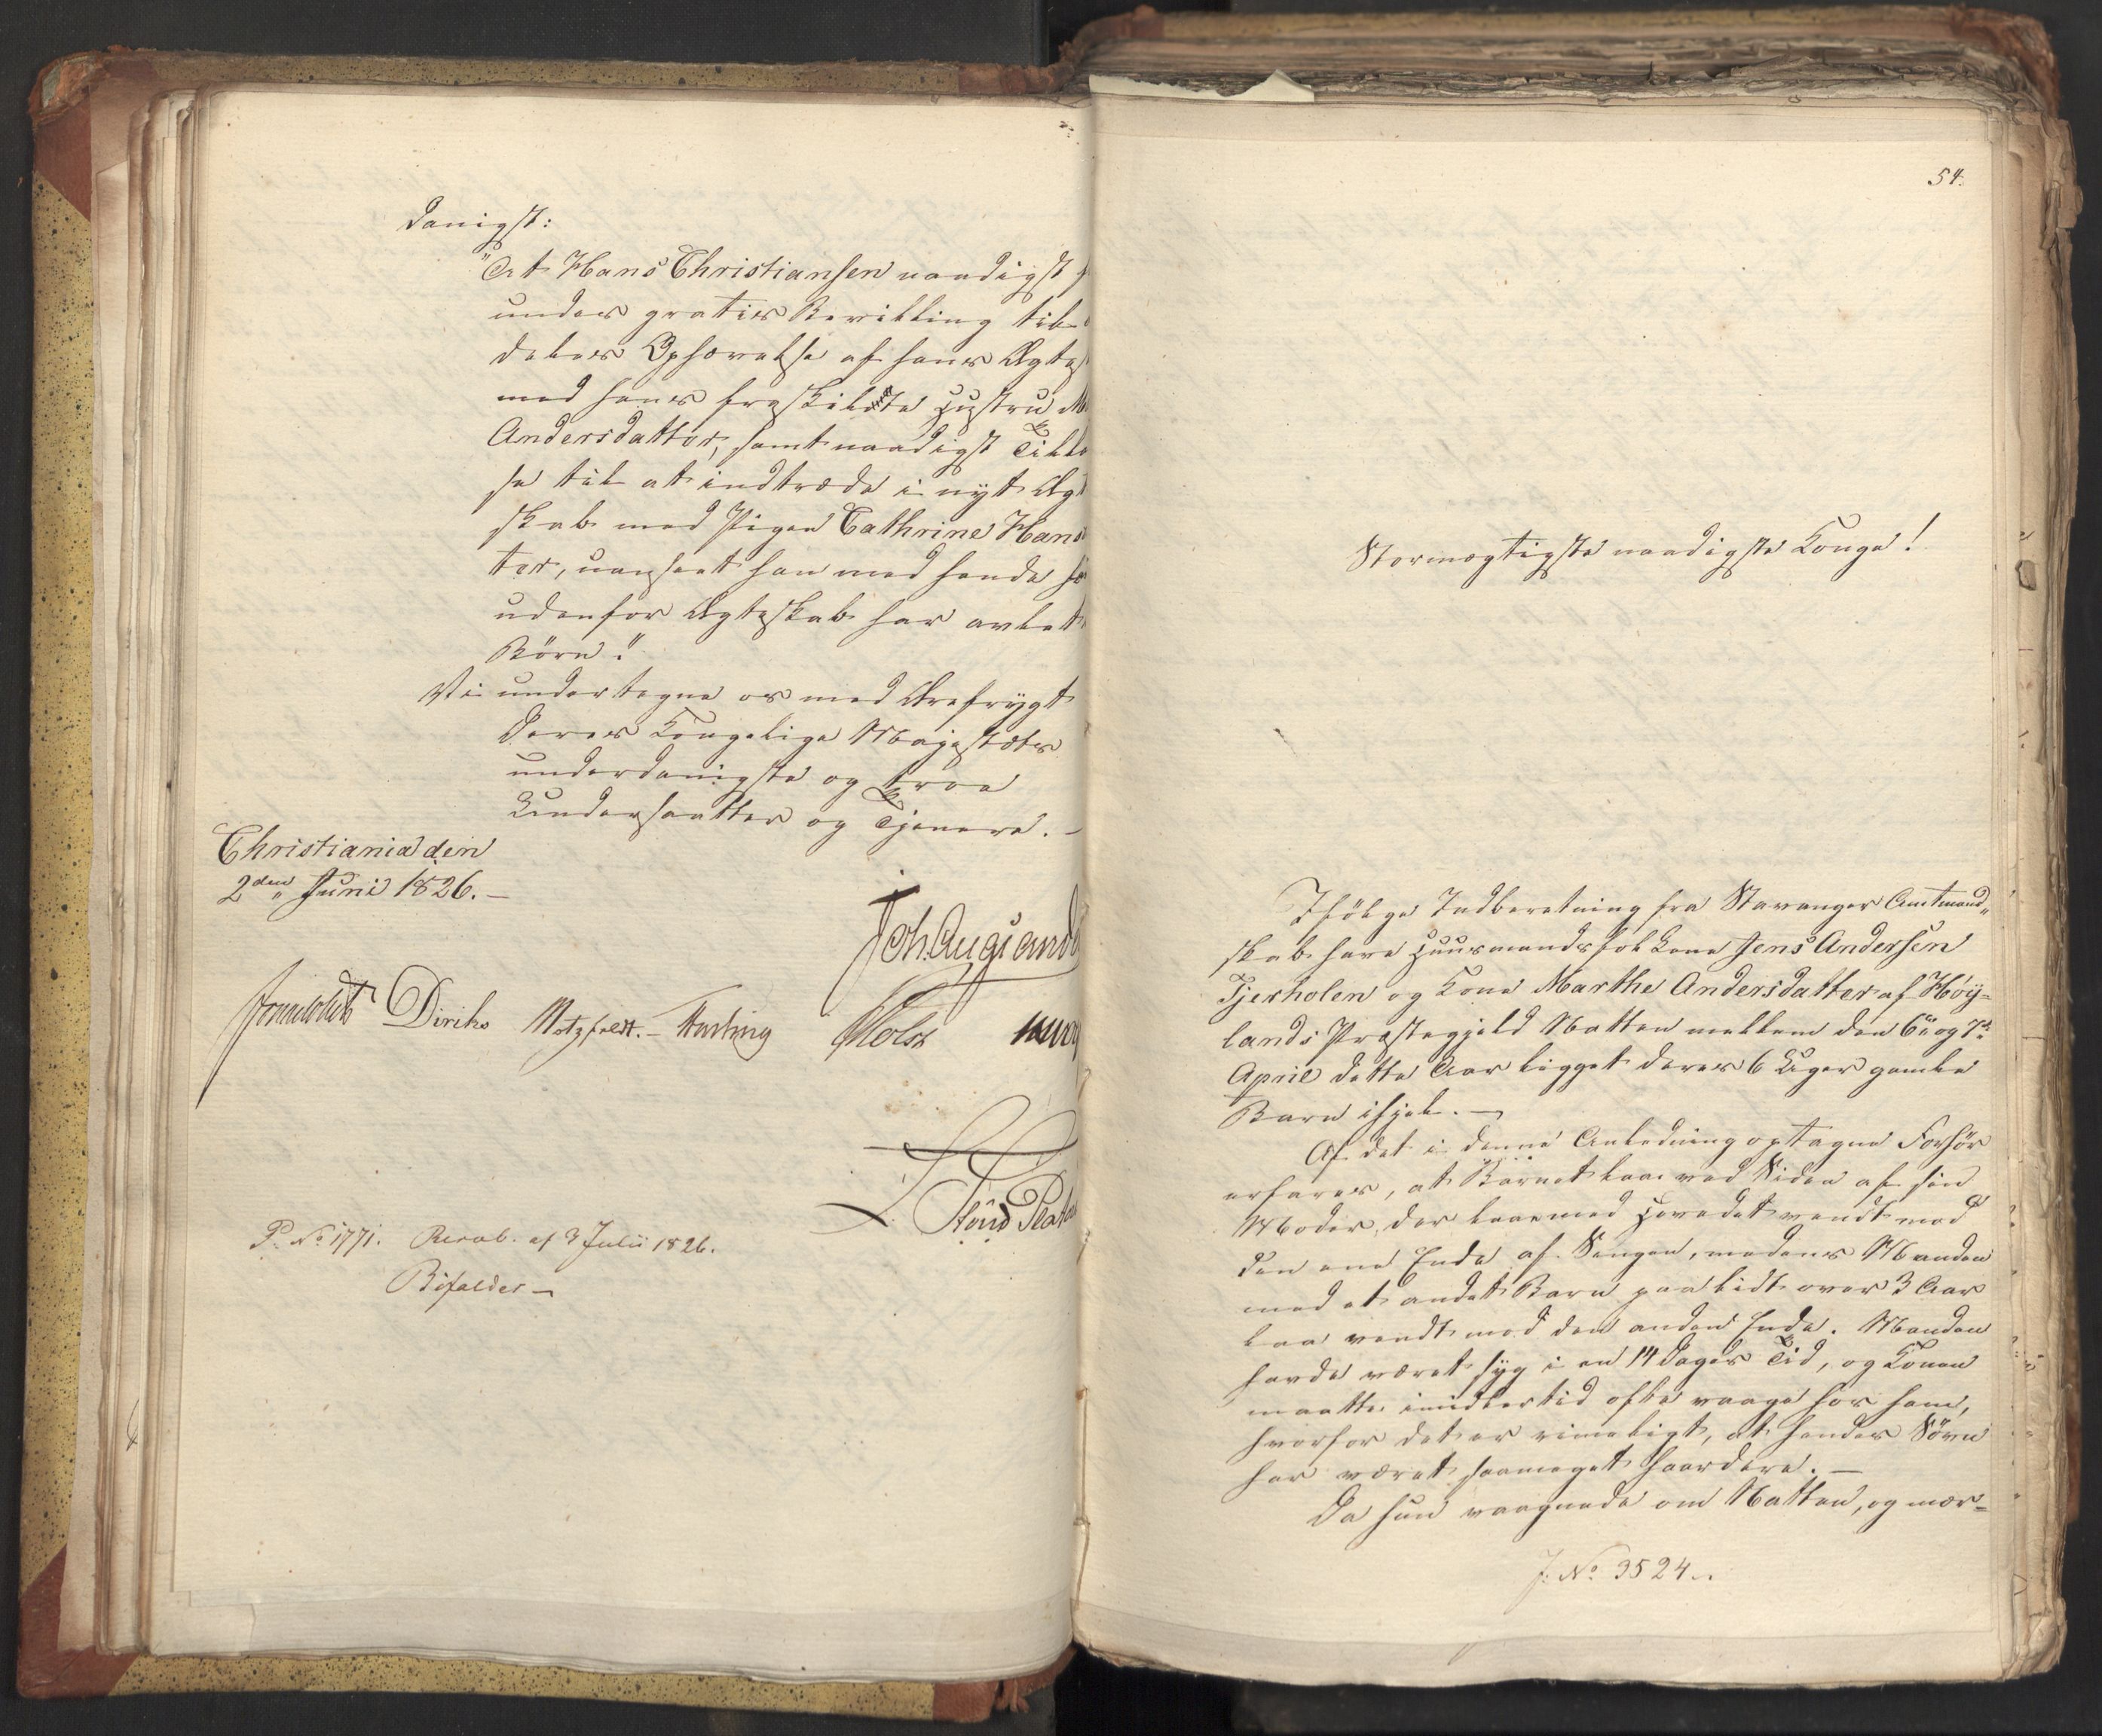 danigst:
"At Hans Christiansen naadigst
undes gratis Bevilling til
deles Ophævelse af hans Ægtes
med hans fraskildte Hustru M
Andersdatter, samt naadigst Tilla
se til at indtræde i nyt Ægt
skab med Pigen Cathrine Hans
ter, uanseet han med hende
udenfor Ægteskab har avlet
Börn."
Vi undertegne os med Ærefrygt
Deres Kongelige Majestæts
underdanigste og troe
Undersaatter og Tjenere. -
Christiania den
2den Juni 1826. -
Joh. Aug. Sand
Jonas Collett Diriks Motzfeldt. - Hartvig Holst
L. Stoud Plat
P. No 1771. Resol. af 3 Julii 1826.
Bifaldes -
54.
Stormægtigste naadigste Konge!
Ifölge Indberetning fra Stavanger Amtmand„
skab have Huusmandsfolkene Jens Andersen
Tjerholen og Kone Marthe Andersdatter af Höy=
lands Præstegjeld Natten mellem den 6te og 7de
April dette Aar ligget deres 6 Uger gamle
Barn ihjel. -
Af det i denne Anledning optagne Forhör
erfares, at Barnet laae ved Siden af sin
Moder, der laae med Hovedet vendt mod
den ene Ende af Sengen, medens Manden
med et andet Barn paa lidt over 3 Aar
laa vendt mod den anden Ende. Manden
havde været syg i en 14 Dages Tid, og Konen
maatte imidlertid ofte vaage hos ham,
hvorfor det er rimeligt, at hendes Sövn
har været saameget haardere. -
Da hun vaagnede om Natten, og mær=
J: No 3524.